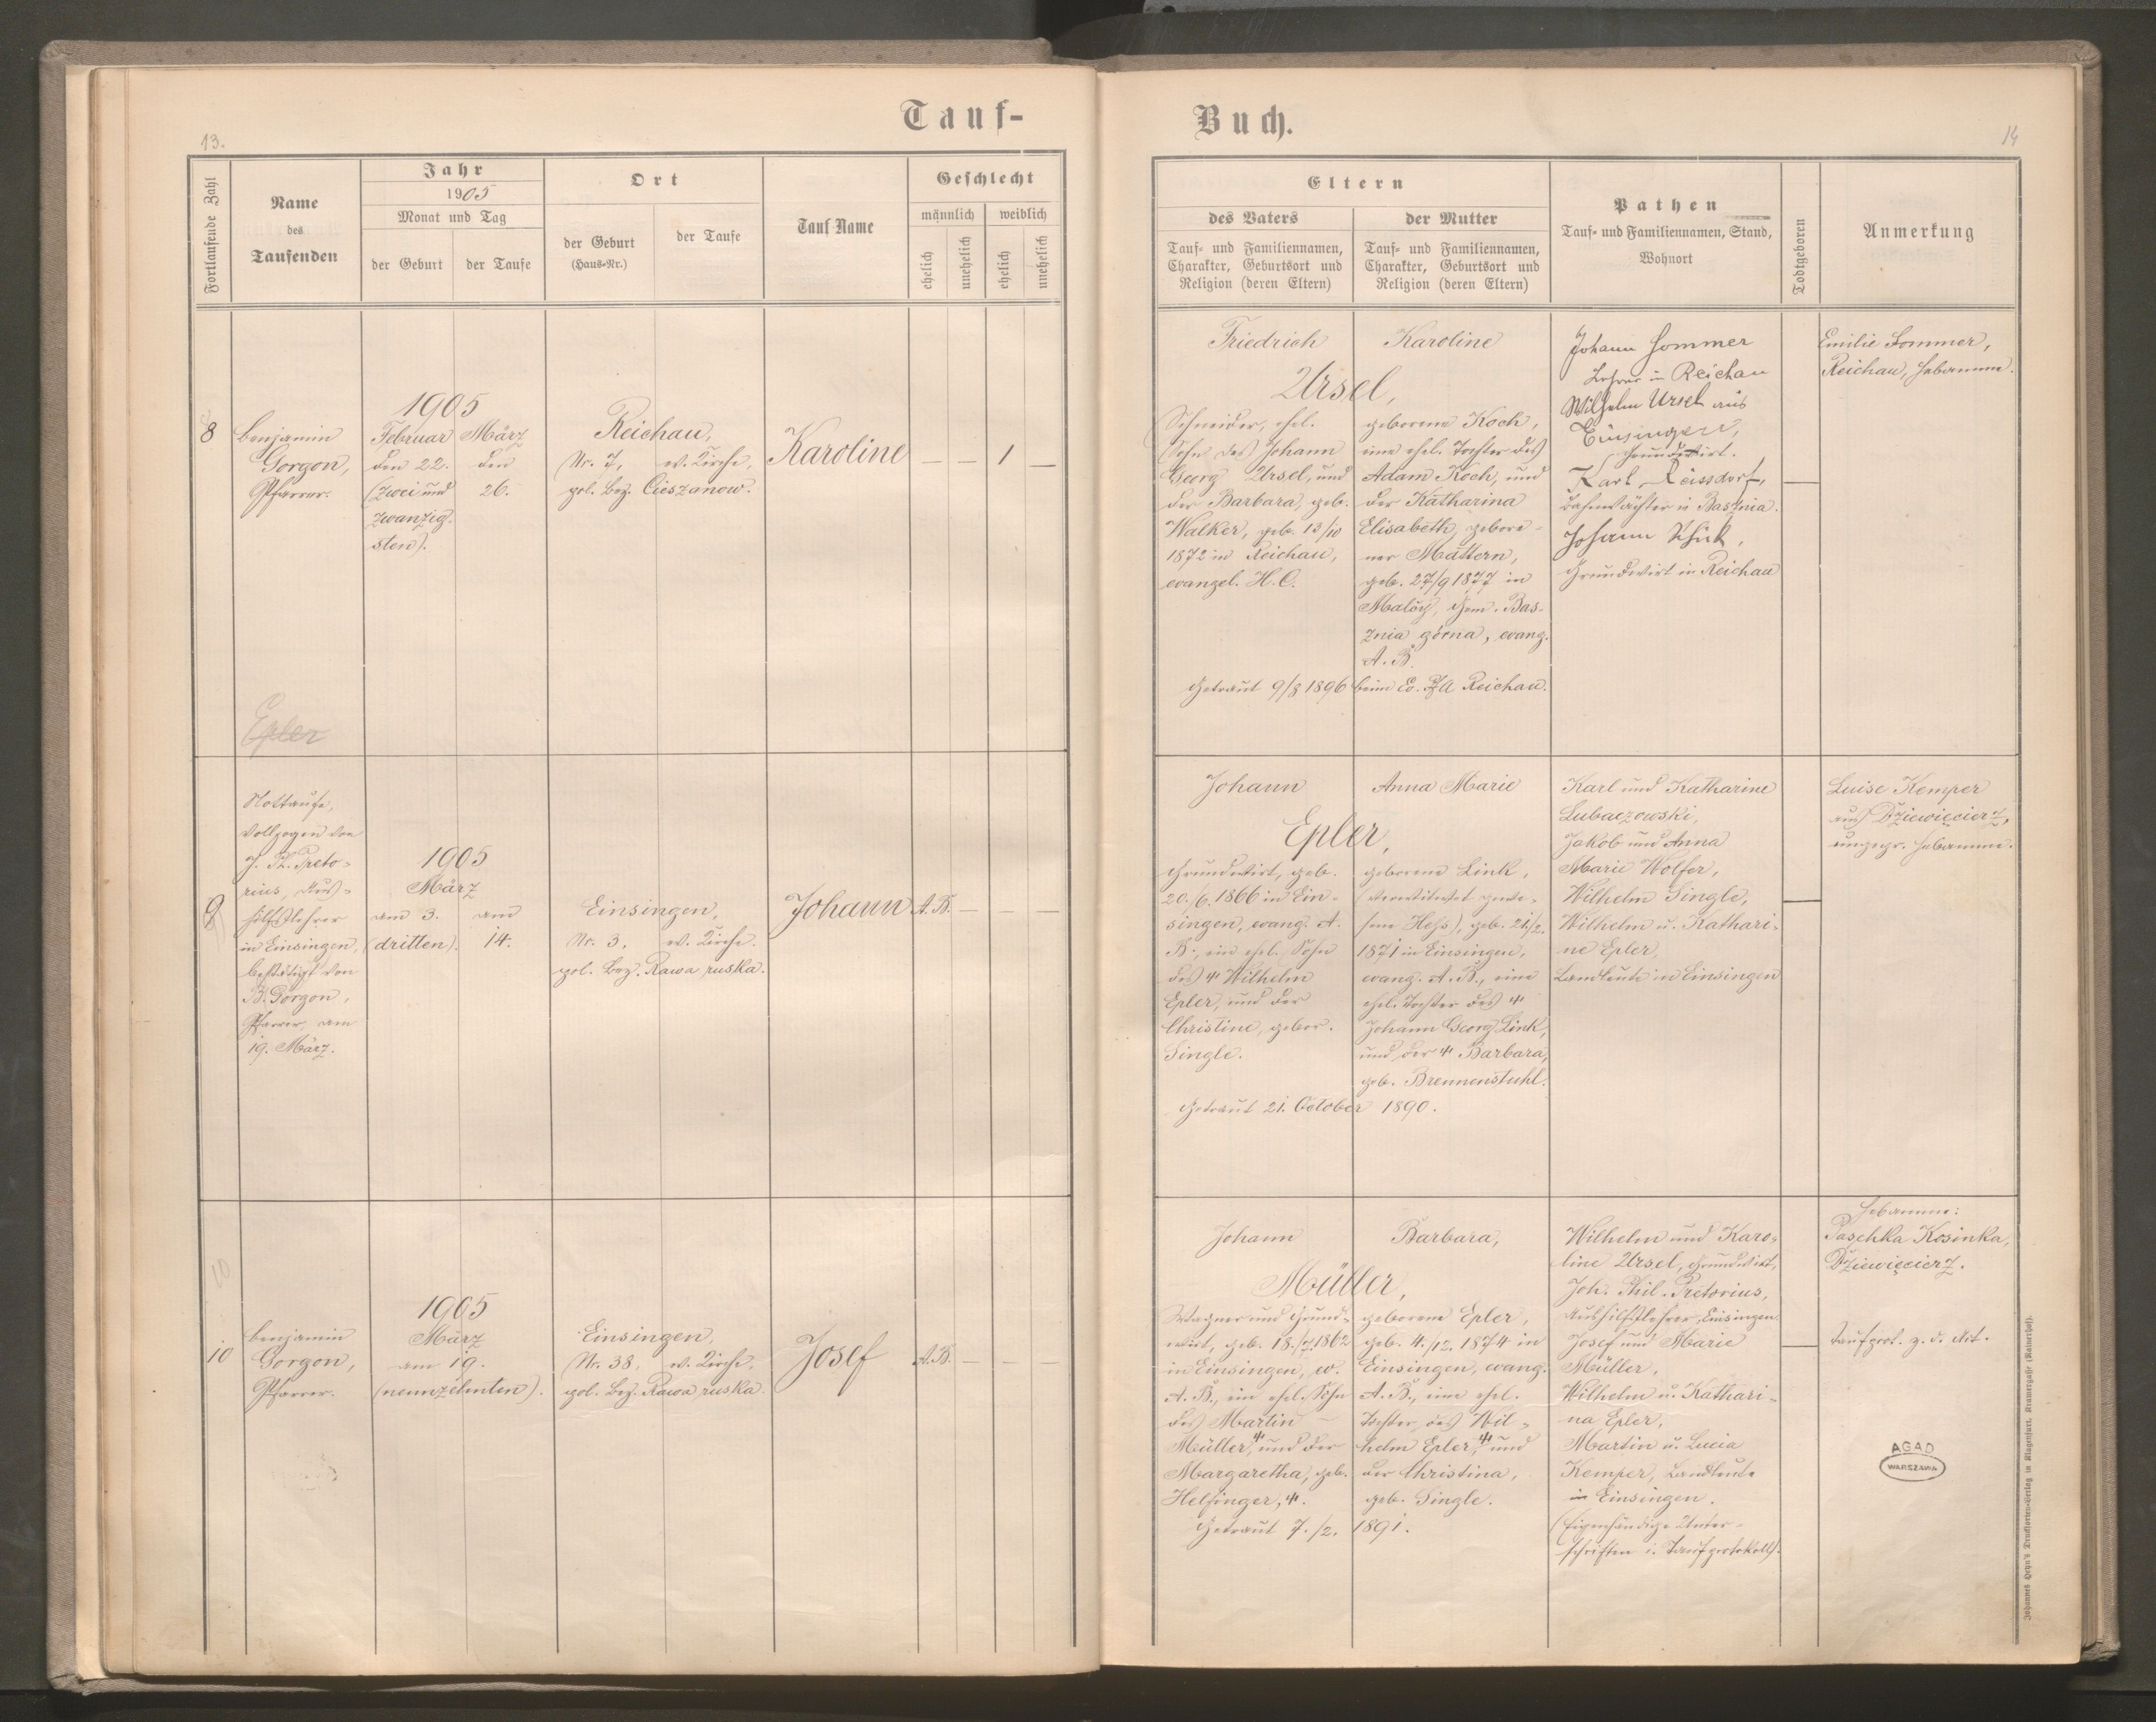 Tauf-
13.
Fortlaufende Zahl
Name
des
Taufenden
Jahr
1905
Monat und Tag
der Geburt
der Taufe
Ort
der Geburt
(Haus-Nr.)
der Taufe
Tauf Name
Geschlecht
männlich
weiblich
ehelich
unehelich
ehelich
unehelich
8
Benjamin
Gorgon,
Pfarrer.
1905
Februar März
den 22. den
(zwei und 26.
zwanzig-
sten).
Reichau,
Nr. 7, ev. Kirche,
pol. Bez. Cieszanow.
Karoline
— — 1 —
Epler
9
Nottaufe,
vollzogen von
J. Ph. Preto-
rius, Aus-
hilfslehrer
in Einsingen,
bestätigt von
B. Gorgon,
Pfarrer, am
19. März.
1905
März
am 3. am
(dritten). 14.
Einsingen,
Nr. 3, ev. Kirche.
pol. Bez. Rawa ruska.
Johann
A. B. — — —
10
10
Benjamin
Gorgon,
Pfarrer.
1905
März
am 19.
(neunzehnten).
Einsingen,
Nr. 38, ev. Kirche,
pol. Bez. Rawa ruska.
Josef
A. B. — — —
Buch.
14
Eltern
des Vaters
Tauf- und Familiennamen,
Charakter, Geburtsort und
Religion (deren Eltern)
der Mutter
Tauf- und Familiennamen,
Charakter, Geburtsort und
Religion (deren Eltern)
Pathen
Tauf- und Familiennamen, Stand,
Wohnort
Todtgeboren
Anmerkung
Friedrich Karoline
Ursel,
Schneider, ehel.
Sohn des Johann
Georg Ursel, und
der Barbara, geb.
Walker, geb. 13/10
1872 in Reichau,
evangel. H. C.
geborene Koch,
eine ehel. Tochter des
Adam Koch, und
der Katharina
Elisabeth, gebore-
ner Mattern,
geb. 27/9 1877 in
Gem. Bas-
znia górna, evang.
A. B.
Getraut 9/8 1896 beim Ev. Reichau.
Johann Sommer
Lehrer in Reichau
Wilhelm Ursel aus
Einsingen,
Grundwirt.
Karl Reissdorf,
Bahnwächter in Basznia.
Johann
Grundwirt in Reichau
—
Emilie Sommer,
Reichau, Hebamme.
Johann Anna Marie
Epler,
Grundwirt, geb.
20./6. 1866 in Ein-
singen, evang. A.
B., ein ehel. Sohn
des Wilhelm
Epler, und der
Christine, gebor.
Single.
geborene Link,
(verwitwet gewe-
sene Heß), geb. 21./2.
1871 in Einsingen,
evang. A. B., eine
ehel. Tochter des
Johann Georg Link,
und der Barbara,
geb. Brennenstuhl.
Getraut 21. October 1890.
Karl und Katharine
Lubaczowski,
Jakob und Anna
Marie Wolfer,
Wilhelm Single,
Wilhelm u. Kathari-
ne Epler,
Landleute in Einsingen
—
Luise Kemper
aus Dziewięcierz,
ungepr. Hebamme.
Johann Barbara,
Müller,
Wagner und Grund-
wirt, geb. 18./7. 1862
in Einsingen, ev.
A. B., ein ehel. Sohn
des Martin
Müller, und der
Margaretha, geb.
Helfinger,
geborene Epler,
geb. 4./12. 1874 in
Einsingen, evang.
A. B., eine ehel.
Tochter des Wil-
helm Epler, und
der Christina,
geb. Single.
Getraut 7./2. 1891.
Wilhelm und Karo-
line Ursel, Grundwirt,
Joh. Phil. Pretorius,
Aushilfslehrer, Einsingen
Josef und Marie
Müller,
Wilhelm u. Kathari-
na Epler,
Martin u. Lucia
Kemper, Landleute
in Einsingen.
(Eigenhändige Unter-
schriften i. Taufprotokoll).
—
Hebamme:
Paschka Kosinka,
Dziewięcierz.
Taufprot. z. d. Akt.
AGAD
WARSZAWA